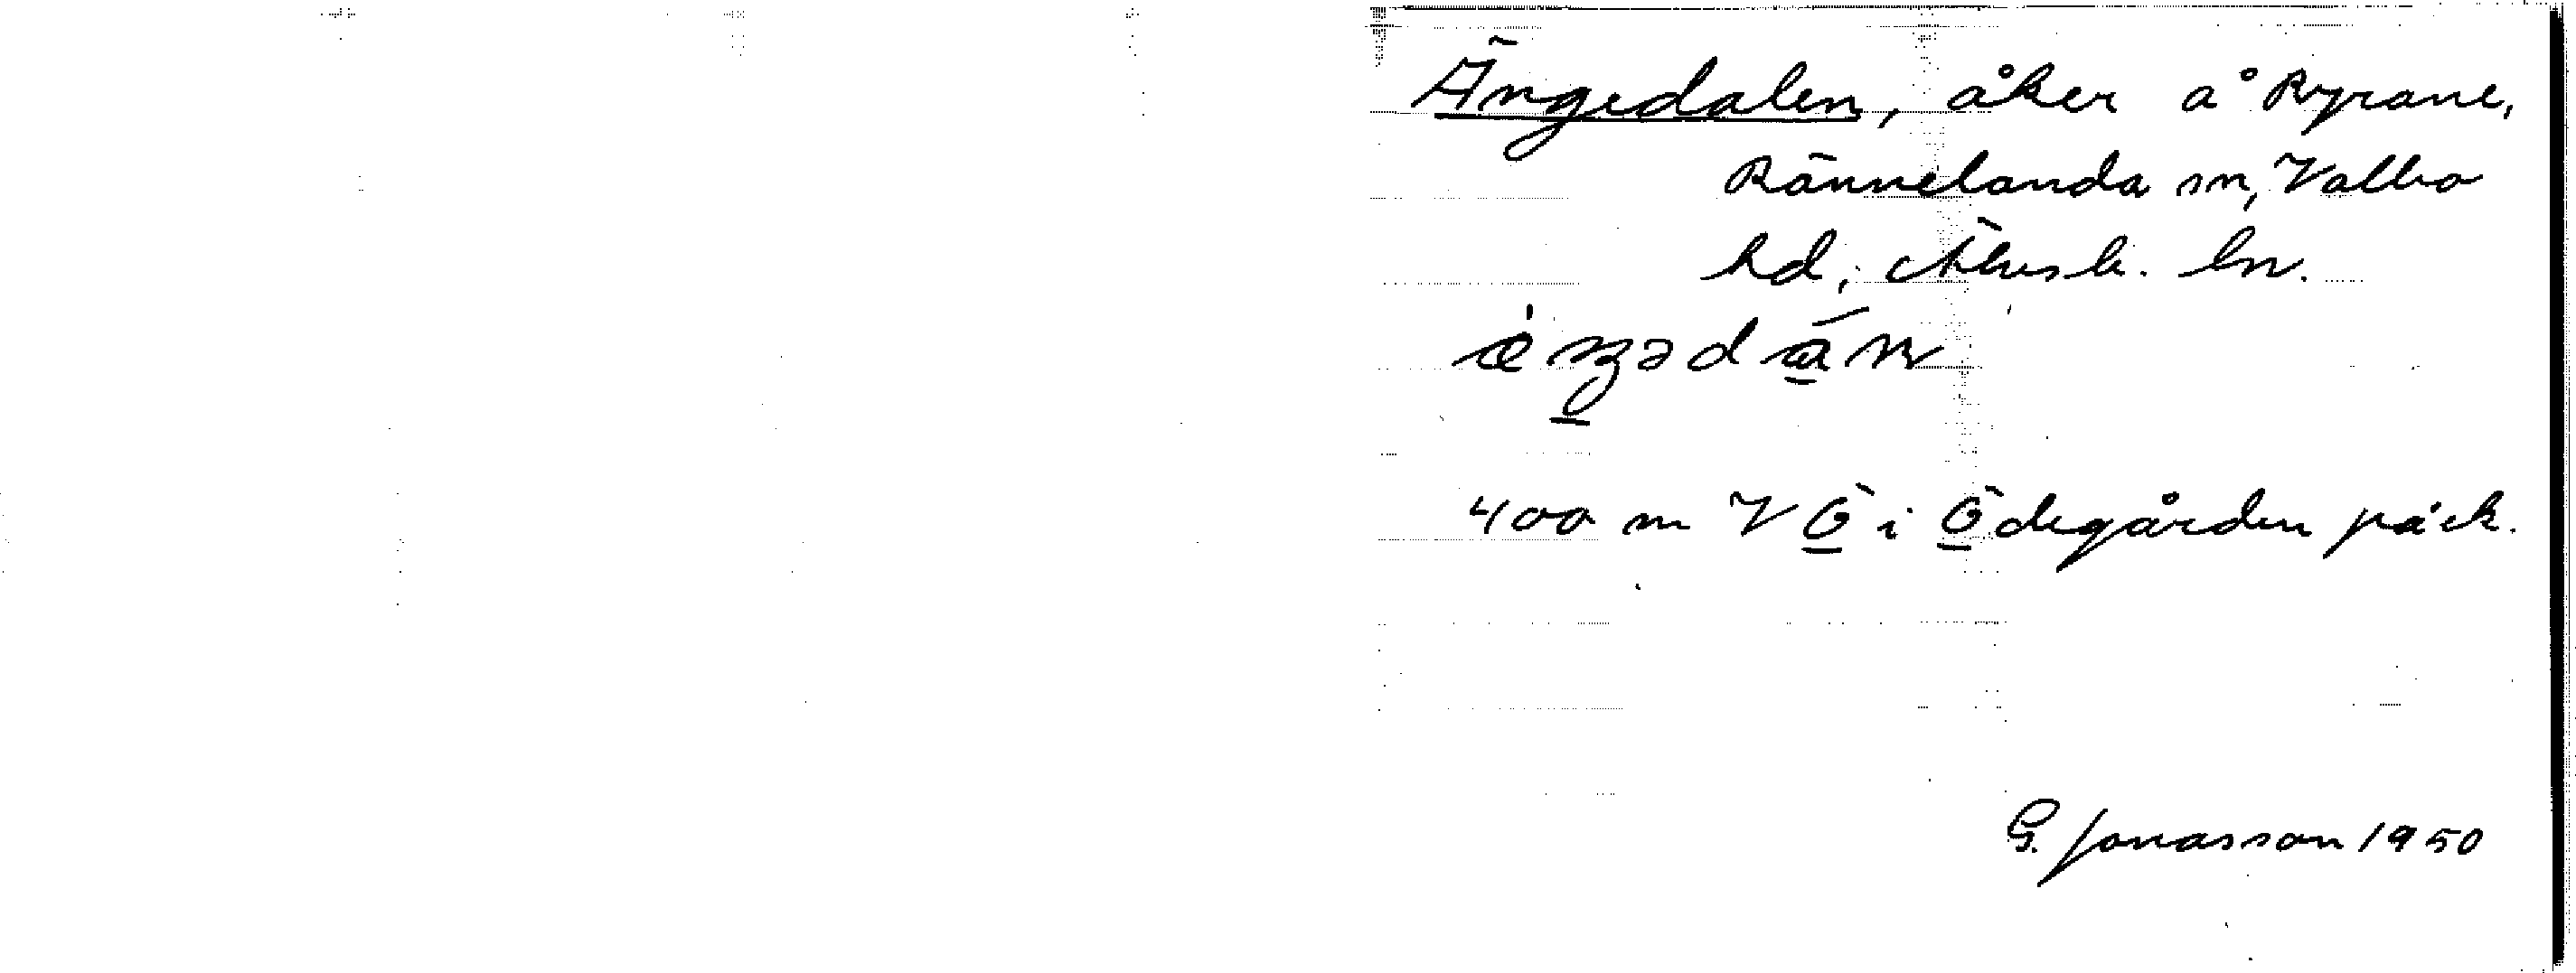 Ängedalen, åker å Ryrane,
Rännelanda sn, Valbo
hd, Älvsb. ln.
400 m V Ö i Ödegården på ek.
G. Jonasson 1950